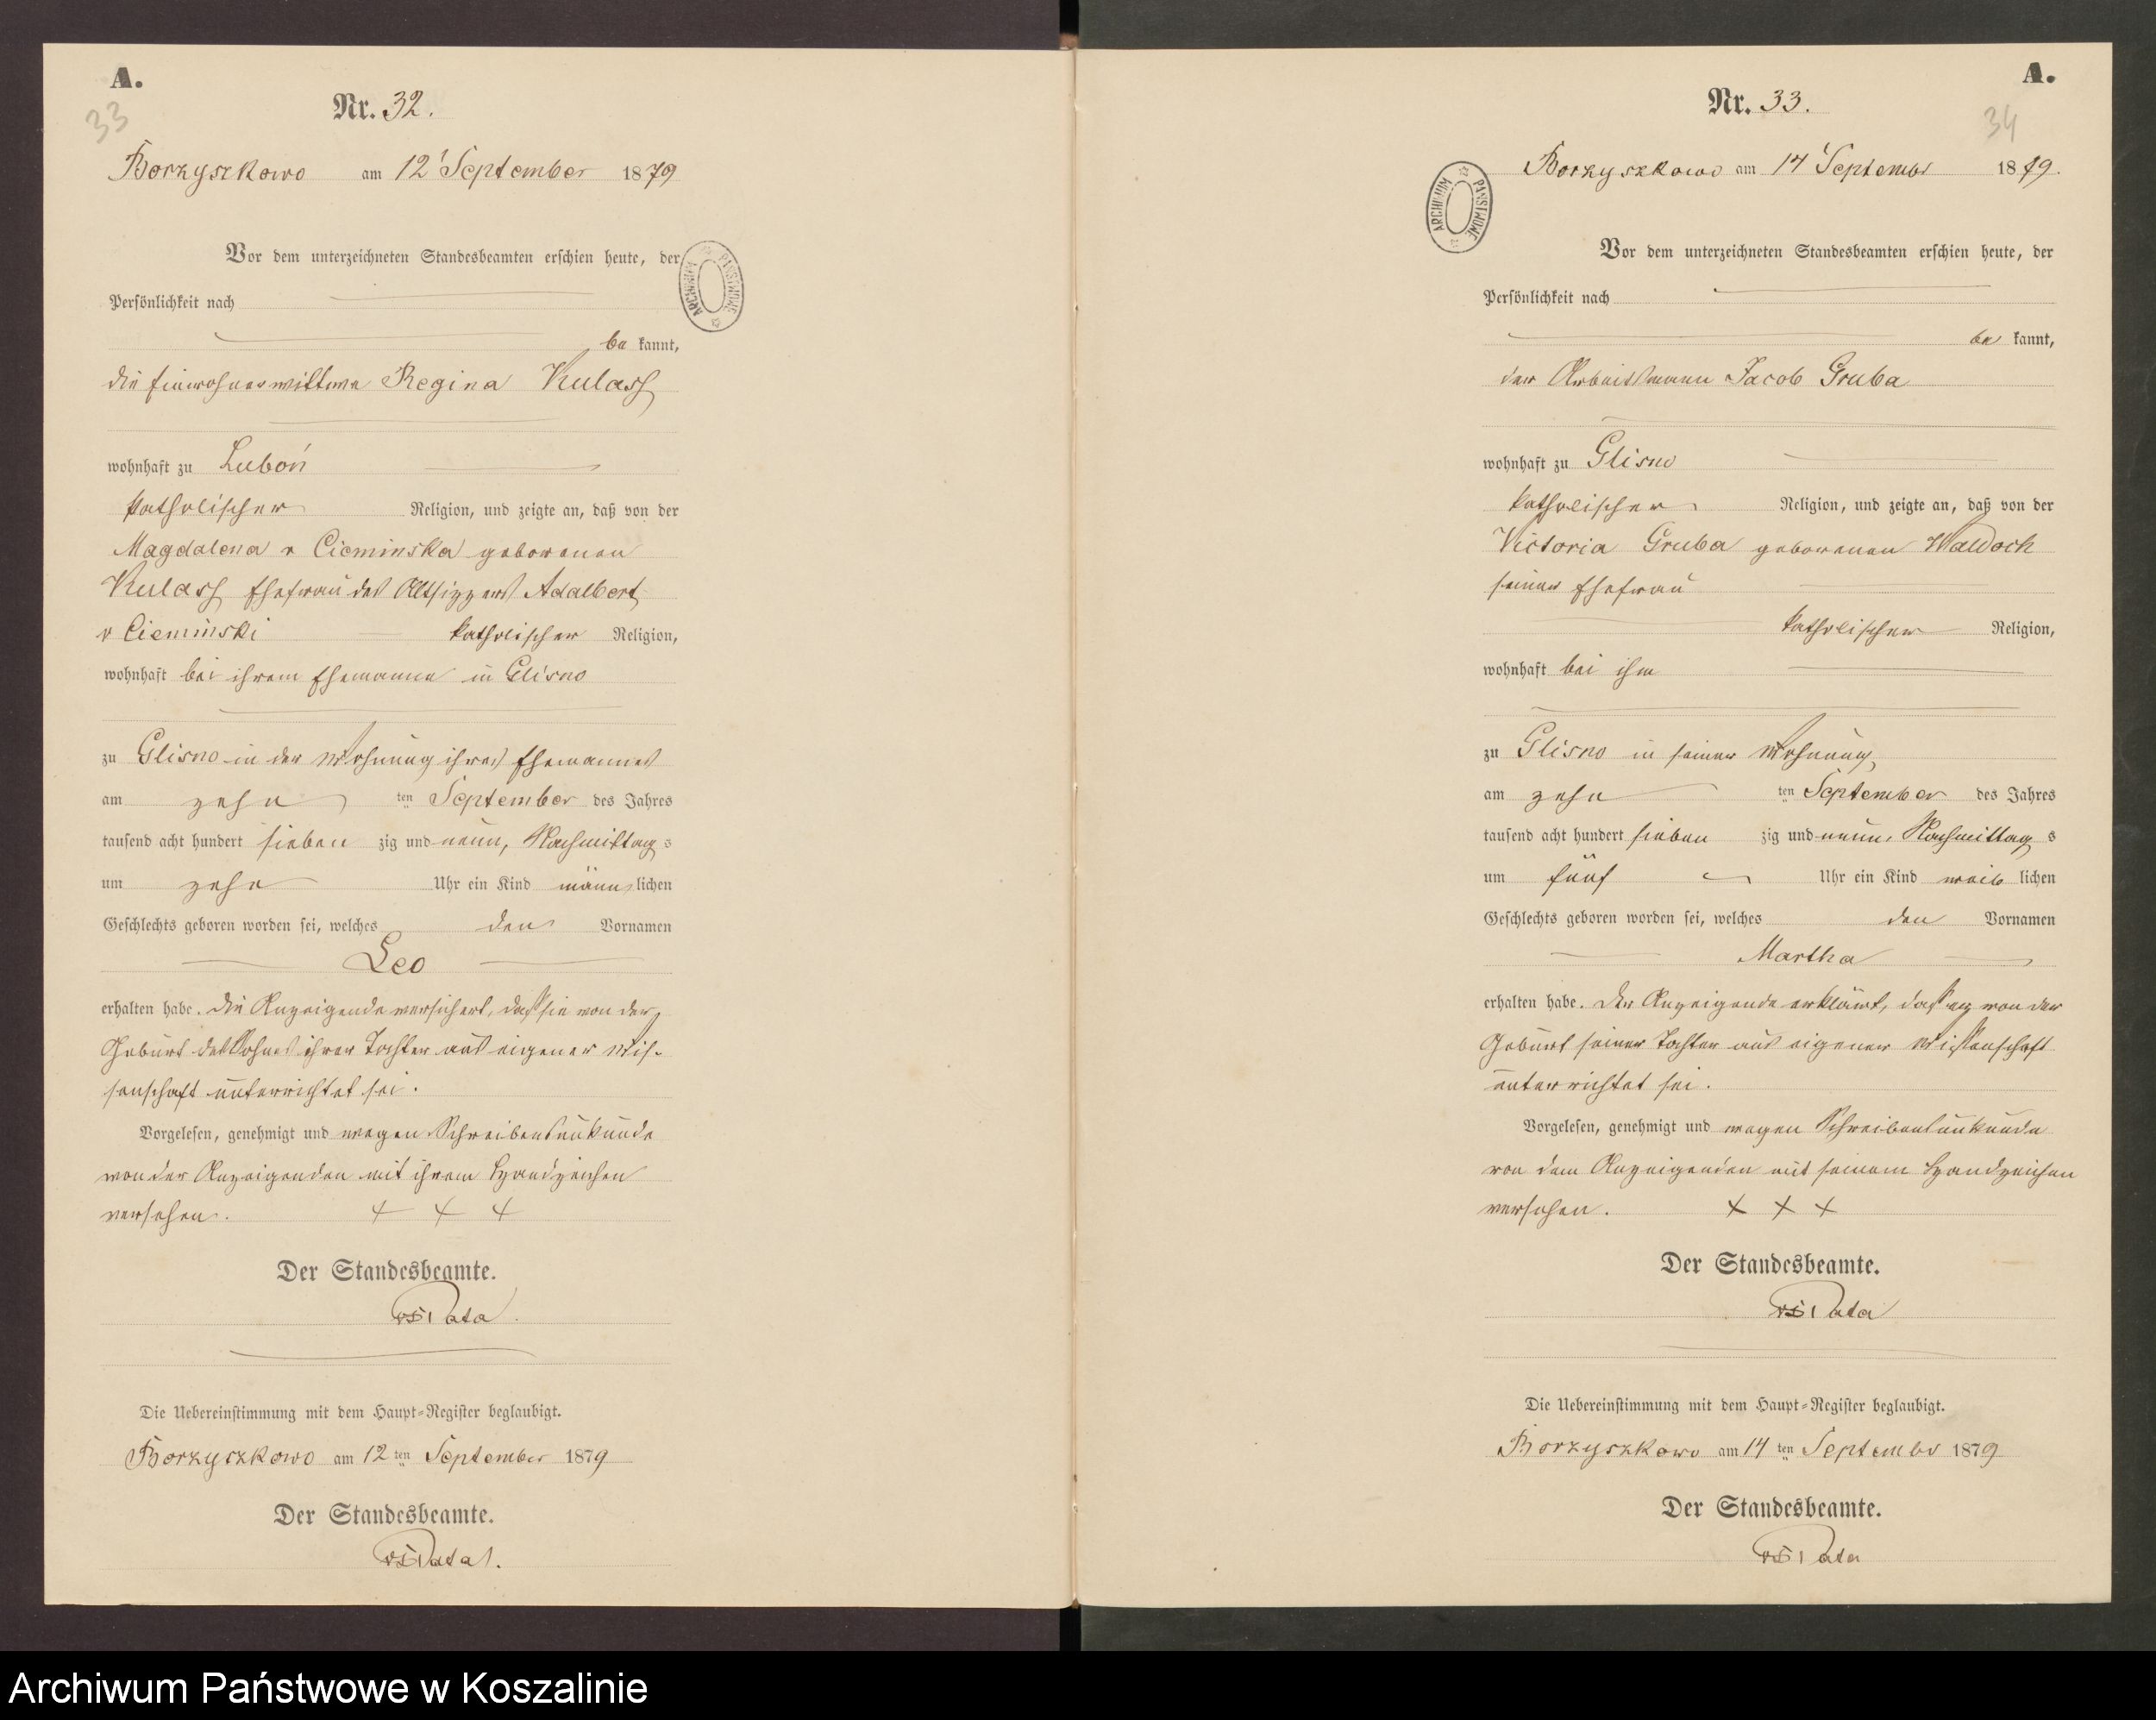 A.
33
Nr. 32.
Borzyszkowo am 12' September 1879
Vor dem unterzeichneten Standesbeamten erschien heute, der
ARCHIWUM PAŃSTWOWE
Persönlichkeit nach
be kannt,
die Einwohnerwittwe Regina Kulass
wohnhaft zu Luboń
katholischer Religion, und zeigte an, daß von der
Magdalena v Cieminska geborenen
Kulass Ehefrau des Altsitzers Adalbert
v Cieminski katholischer Religion,
wohnhaft bei ihrem Ehemanne in Glisno
zu Glisno in der Wohnung ihres Ehemannes
am zehn ten September des Jahres
tausend acht hundert sieben zig und neun, Nachmittag s
um zehn Uhr ein Kind männ lichen
Geschlechts geboren worden sei, welches den Vornamen
Leo
erhalten habe. Die Anzeigende versichert, daß sie von der
Geburt des Sohnes ihrer Tochter aus eigener Wis-
senschaft unterrichtet sei.
Vorgelesen, genehmigt und wegen Schreibensunkunde
von der Anzeigenden mit ihrem Handzeichen
versehen. + + +
Der Standesbeamte.
Die Uebereinstimmung mit dem Haupt-Register beglaubigt.
Borzyszkowo am 12 ten September 1879
Der Standesbeamte.
A.
34
Nr. 33.
Borzyszkowo am 14' Septembr 1879.
ARCHIWUM PAŃSTWOWE
Vor dem unterzeichneten Standesbeamten erschien heute, der
Persönlichkeit nach
be kannt,
der Arbeitsmann Jacob Gruba
wohnhaft zu Glisno
katholischer Religion, und zeigte an, daß von der
Victoria Gruba geborenen Waldoch
seiner Ehefrau
katholischer Religion,
wohnhaft bei ihm
zu Glisno in seiner Wohnung
am zehn ten September des Jahres
tausend acht hundert sieben zig und neun, Nachmittag s
um fünf Uhr ein Kind weib lichen
Geschlechts geboren worden sei, welches den Vornamen
Martha
erhalten habe. Der Anzeigende erklärt, daß er von der
Geburt seiner Tochter aus eigener Wissenschaft
unterrichtet sei.
Vorgelesen, genehmigt und wegen Schreibensunkunde
von dem Anzeigenden mit seinem Handzeichen
versehen. + + +
Der Standesbeamte.
Die Uebereinstimmung mit dem Haupt-Register beglaubigt.
Borzyszkowo am 14 ten Septembr 1879
Der Standesbeamte.
Archiwum Państwowe w Koszalinie